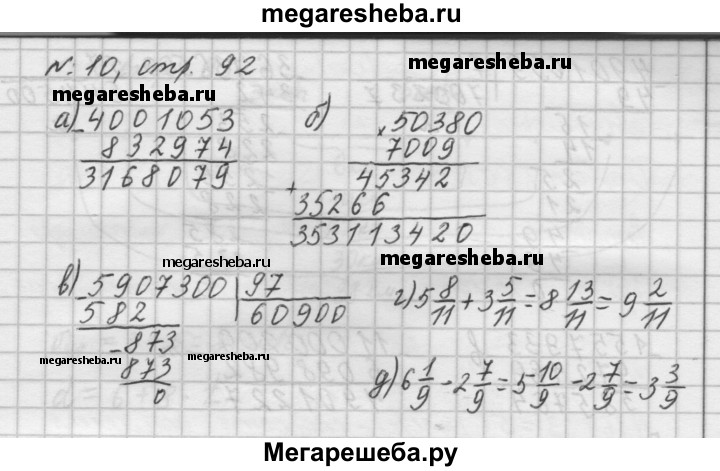 megaresheba.ru
№ 10, стр. 92
megaresheba.ru
megaresheba.ru
а) - 4001053
832974
3168079
б) × 50380
7009
45342
+
35266
353113420
megaresheba.ru
megaresheba.ru
в) - 5907300 | 97
582 60900
- 873
873
0
megaresheba.ru
megaresheba.ru
г) 5 8/11 + 3 5/11 = 8 13/11 = 9 2/11
д) 6 1/9 - 2 7/9 = 5 10/9 - 2 7/9 = 3 3/9
Мегарешеба.ру